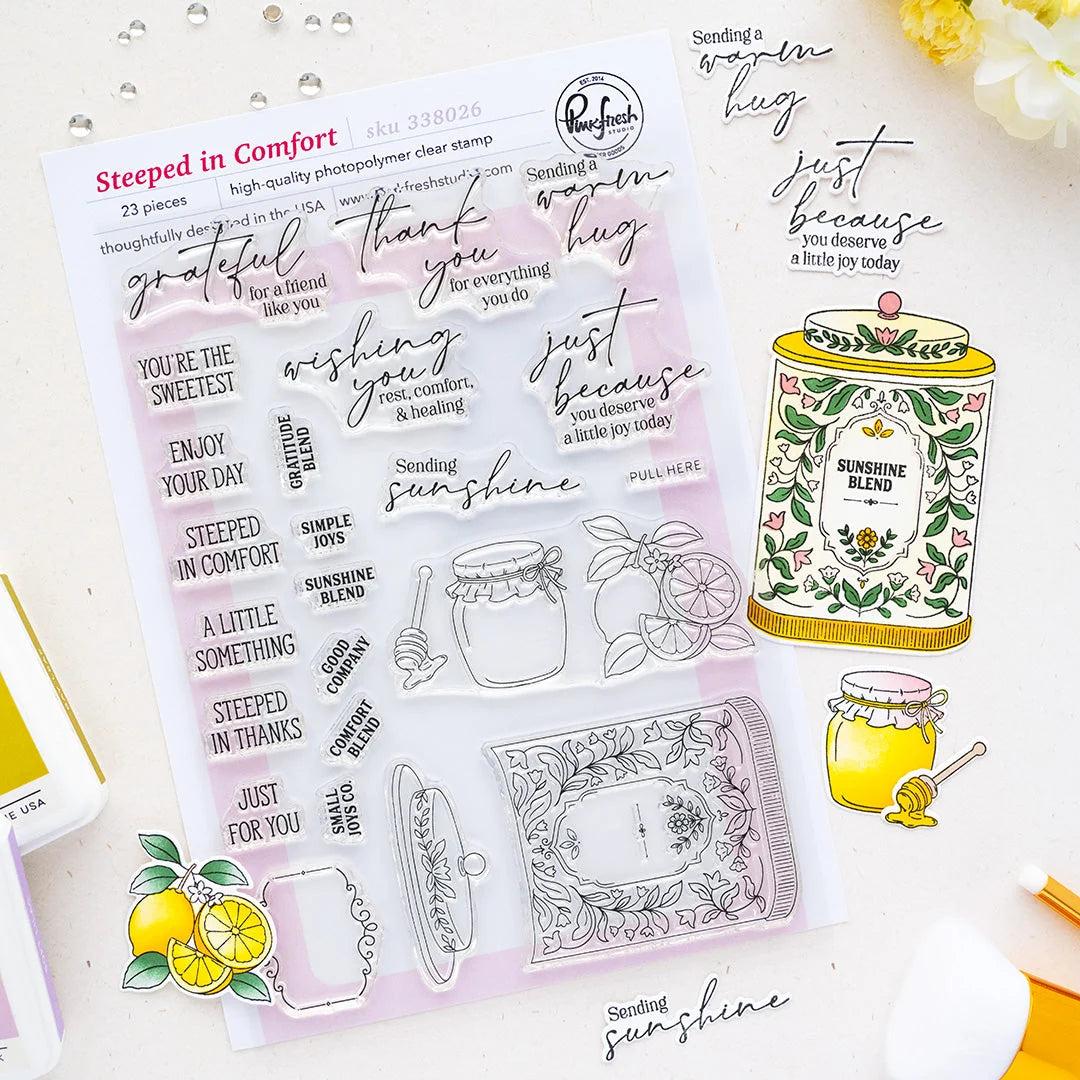 Steeped in Comfort
sku 338026
23 pieces
high-quality photopolymer clear stamp
thoughtfully in the USA
EST. 2014
Pinkfresh
STUDIO
grateful
for a friend
like you
thank
you
for everything
you do
Sending a
warm
hug
YOU'RE THE
SWEETEST
wishing
you
rest, comfort,
& healing
just
because
you deserve
a little joy today
ENJOY
YOUR DAY
GRATITUDE
BLEND
Sending
sunshine
PULL HERE
STEEPED
IN COMFORT
SIMPLE
JOYS
SUNSHINE
BLEND
A LITTLE
SOMETHING
GOOD
COMPANY
STEEPED
IN THANKS
COMFORT
BLEND
JUST
FOR YOU
SMALL
JOYS CO.
Sending a
warm
hug
just
because
you deserve
a little joy today
SUNSHINE
BLEND
Sending
sunshine
USA